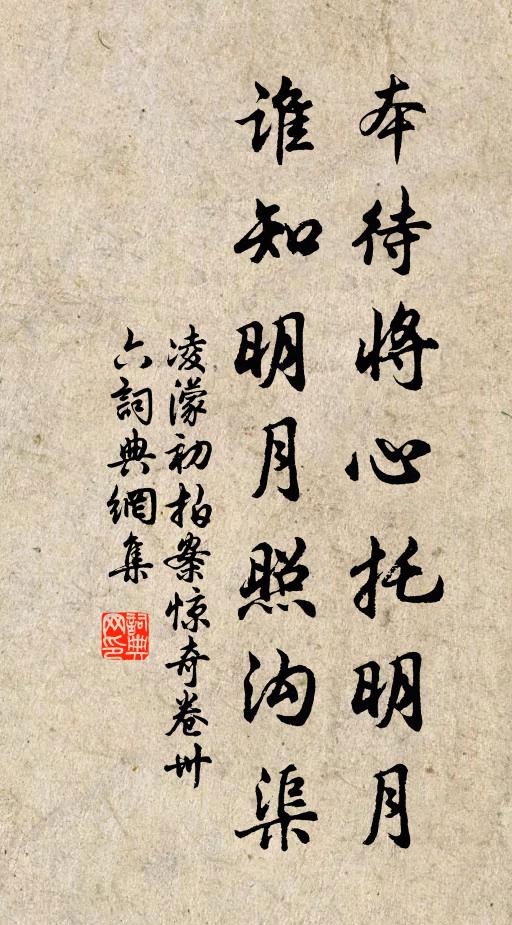 本待将心托明月
谁知明月照沟渠
凌濛初拍案惊奇卷卅
六詞典網集
詞典
网印